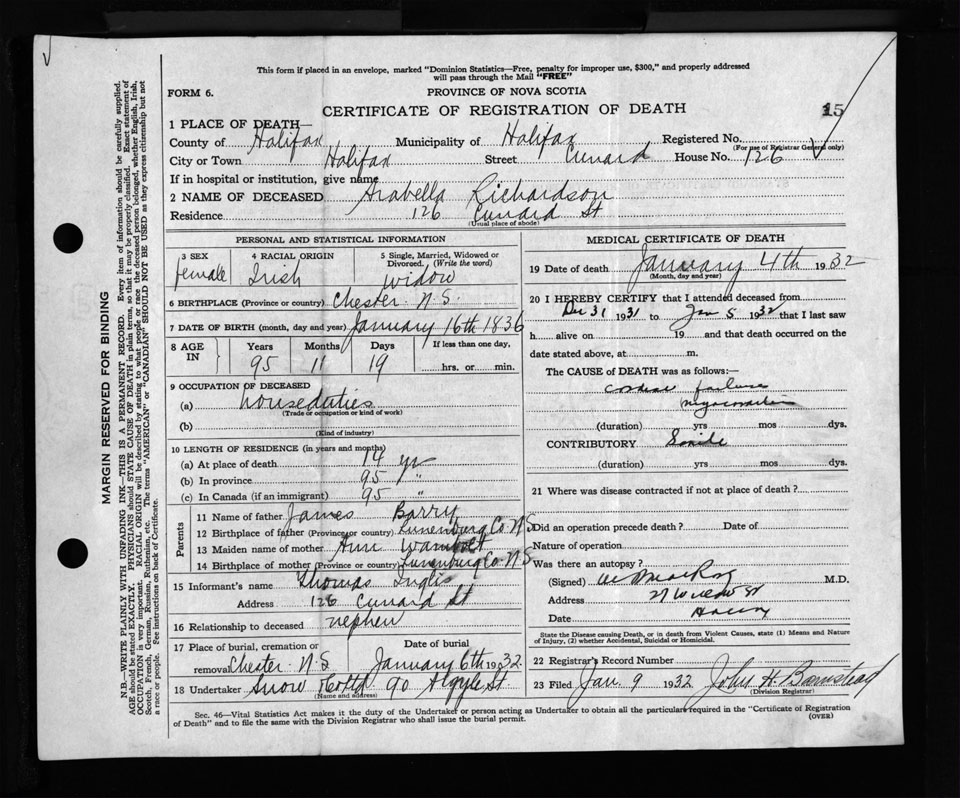 This form if placed in an envelope, marked "Dominion Statistics—Free, penalty for improper use, $300," and properly addressed
will pass through the Mail "FREE"
FORM 6.
PROVINCE OF NOVA SCOTIA
CERTIFICATE OF REGISTRATION OF DEATH
15
1 PLACE OF DEATH—
County of Halifax Municipality of Halifax Registered No.
(For use of Registrar General only)
City or Town Halifax Street Cunard House No. 126
If in hospital or institution, give name
2 NAME OF DECEASED Arabella Richardson
Residence 126 Cunard St
(Usual place of abode)
PERSONAL AND STATISTICAL INFORMATION
3 SEX 4 RACIAL ORIGIN 5 Single, Married, Widowed or
Divorced. (Write the word)
female Irish widow
6 BIRTHPLACE (Province or country) Chester N.S.
7 DATE OF BIRTH (month, day and year) January 16th 1836
8 AGE IN Years Months Days If less than one day,
95 11 19 hrs. or min.
9 OCCUPATION OF DECEASED
(a) houseduties
(Trade or occupation or kind of work)
(b)
(Kind of industry)
10 LENGTH OF RESIDENCE (in years and months)
(a) At place of death 14 yr
(b) In province 95 "
(c) In Canada (if an immigrant) 95 "
Parents
11 Name of father James Barry
12 Birthplace of father (Province or country) Lunenburg Co. N.S
13 Maiden name of mother Ann
14 Birthplace of mother (Province or country) Lunenburg Co. N.S
15 Informant's name Thomas Inglis
Address 126 Cunard St
16 Relationship to deceased nephew
17 Place of burial, cremation or Date of burial
removal Chester N.S. January 6th 1932
18 Undertaker Snow & Co Ltd 90 Argyle St.
(Name and address)
MEDICAL CERTIFICATE OF DEATH
19 Date of death January 4th 1932
(Month, day and year)
20 I HEREBY CERTIFY that I attended deceased from
Dec 31 1931 to Jan 5 1932 that I last saw
h alive on 19 and that death occurred on the
date stated above, at m.
The CAUSE of DEATH was as follows:
cardiac failure
myocarditis
(duration) yrs mos dys.
CONTRIBUTORY Senile
(duration) yrs mos dys.
21 Where was disease contracted if not at place of death?
Did an operation precede death? Date of
Nature of operation
Was there an autopsy?
(Signed) M.D.
Address
Date
State the Disease causing Death, or in death from Violent Causes, state (1) Means and Nature
of Injury, (2) whether Accidental, Suicidal or Homicidal.
22 Registrar's Record Number
23 Filed Jan. 9 1932 John H. Barnstead
(Division Registrar)
Sec. 46—Vital Statistics Act makes it the duty of the Undertaker or person acting as Undertaker to obtain all the particulars required in the "Certificate of Registration
of Death" and to file the same with the Division Registrar who shall issue the burial permit.
(OVER)
MARGIN RESERVED FOR BINDING
N.B.—WRITE PLAINLY WITH UNFADING INK—THIS IS A PERMANENT RECORD. Every item of information should be carefully supplied.
AGE should be stated EXACTLY. PHYSICIANS should STATE CAUSE OF DEATH in plain terms, so that it may be properly classified. Exact statement of
OCCUPATION is very important. RACIAL ORIGIN will be described by stating to what people or race the deceased person belonged, whether English, Irish,
Scotch, French, German, Russian, Ruthenian, etc. The terms "AMERICAN" or "CANADIAN" SHOULD NOT BE USED as they express citizenship but not
a race or people. See instructions on back of Certificate.